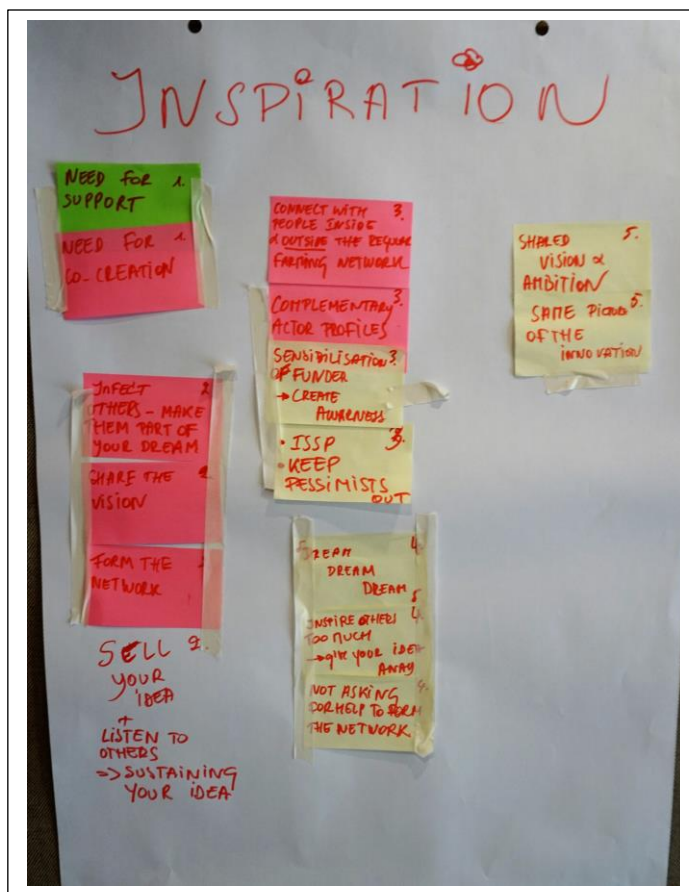 INSPIRATION
NEED FOR 1.
SUPPORT
NEED FOR 1.
CO-CREATION
INFECT 2
OTHERS - MAKE
THEM PART OF
YOUR DREAM
SHARE THE 2.
VISION
FORM THE 2
NETWORK
SELL 2.
YOUR
IDEA
+
LISTEN TO
OTHERS
=> SUSTAINING
YOUR IDEA
CONNECT WITH 3.
PEOPLE INSIDE
& OUTSIDE THE REGULAR
FARMING NETWORK
COMPLEMENTARY 3.
ACTOR PROFILES
SENSIBILISATION 3.
OF FUNDER
→ CREATE
AWARNESS
• ISSP 3.
• KEEP
PESSIMISTS
OUT
DREAM 4.
DREAM
DREAM 5
INSPIRE OTHERS 4.
TOO MUCH
→ give YOUR IDEA
AWAY
NOT ASKING 4.
FOR HELP TO FORM
THE NETWORK
SHARED 5.
VISION &
AMBITION
SAME PICTURE 5.
OF THE
INNOVATION